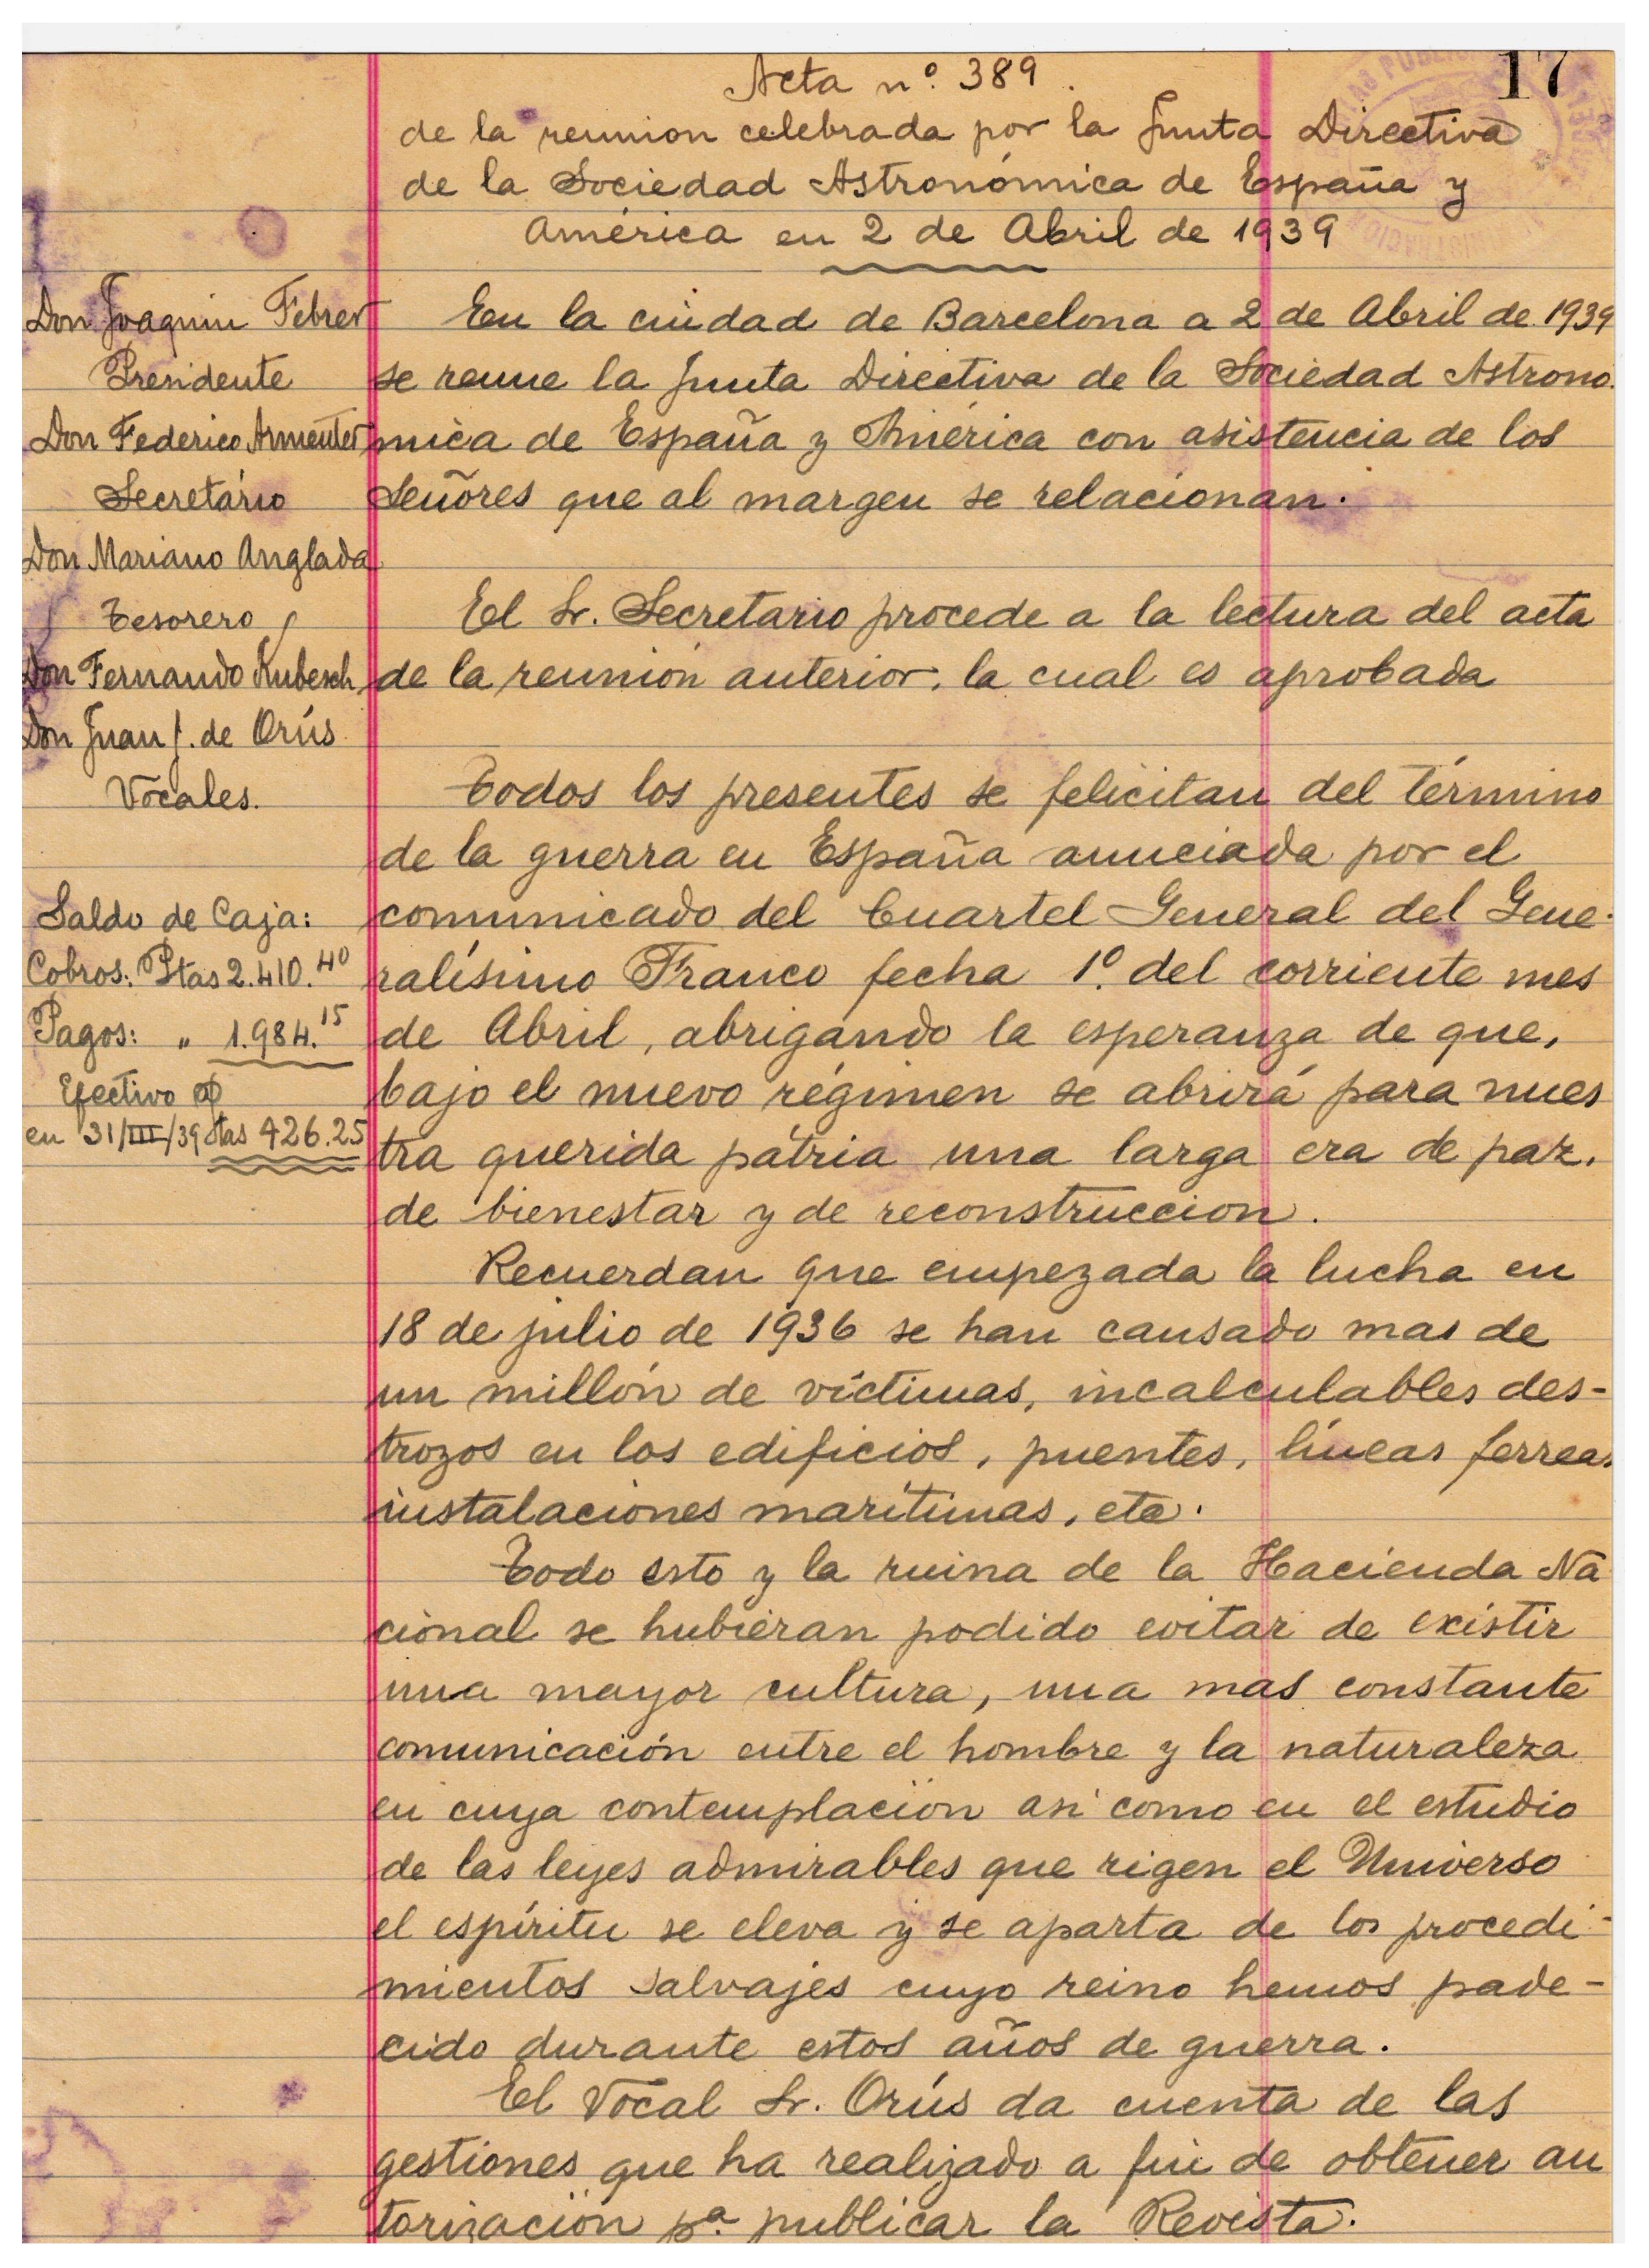 17
Acta nº. 389.
de la reunion celebrada por la Junta Directiva
de la Sociedad Astronómica de España y
América en 2 de Abril de 1939
Don Joaquin Febrer
Presidente
Don Federico Armenter
Secretário
Don Mariano Anglada
Tesorero
Don Fernando Kubesch
Don Juan J. de Orús
Vocales.
Saldo de Caja:
Cobros: Ptas 2.410.40
Pagos: " 1.984.15
Efectivo
en 31/III/39 Ptas 426.25
En la ciudad de Barcelona a 2 de Abril de 1939
se reune la Junta Directiva de la Sociedad Astrono.
mica de España y América con asistencia de los
Señores que al margen se relacionan.
El Sr. Secretario procede a la lectura del acta
de la reunión anterior, la cual es aprobada
Todos los presentes se felicitan del término
de la guerra en España anunciada por el
comunicado del Cuartel General del Gene.
ralísimo Franco fecha 1º. del corriente mes
de Abril, abrigando la esperanza de que,
bajo el nuevo régimen se abrirá para nues
tra querida pátria una larga era de paz,
de bienestar y de reconstruccion.
Recuerdan que empezada la lucha en
18 de julio de 1936 se han causado mas de
un millón de víctimas, incalculables des-
trozos en los edificios, puentes, líneas ferreas
instalaciones marítimas, etc.
Todo esto y la ruina de la Hacienda Na
cional se hubieran podido evitar de existir
una mayor cultura, una mas constante
comunicación entre el hombre y la naturaleza
en cuya contemplación asi como en el estudio
de las leyes admirables que rigen el Universo
el espíritu se eleva y se aparta de los procedi-
mientos salvajes cuyo reino hemos pade-
cido durante estos años de guerra.
El Vocal Sr. Orús da cuenta de las
gestiones que ha realizado a fin de obtener au
torización pª publicar la Revista.